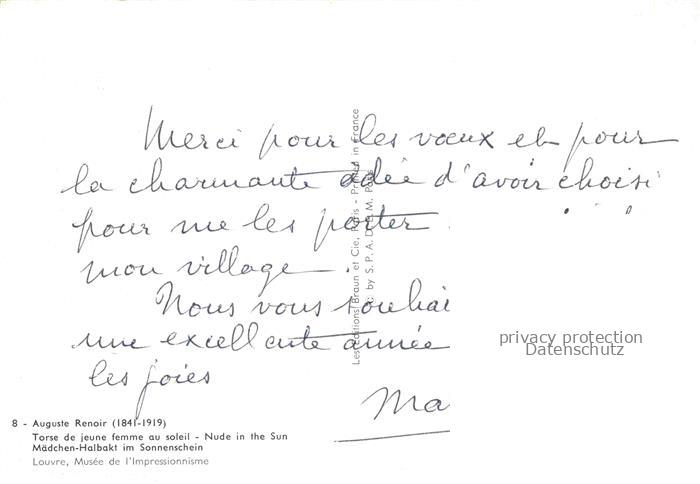 Merci pour les vœux et pour
la charmante idée d'avoir choisi
pour me les porter
mon village.
Nous vous souhai
une excellente année
les joies
Ma
Les Editions Braun et Cie, Paris - Printed in France
by S.P.A.D.E.M. Paris
privacy protection
Datenschutz
8 - Auguste Renoir (1841-1919)
Torse de jeune femme au soleil - Nude in the Sun
Mädchen-Halbakt im Sonnenschein
Louvre, Musée de l'Impressionnisme